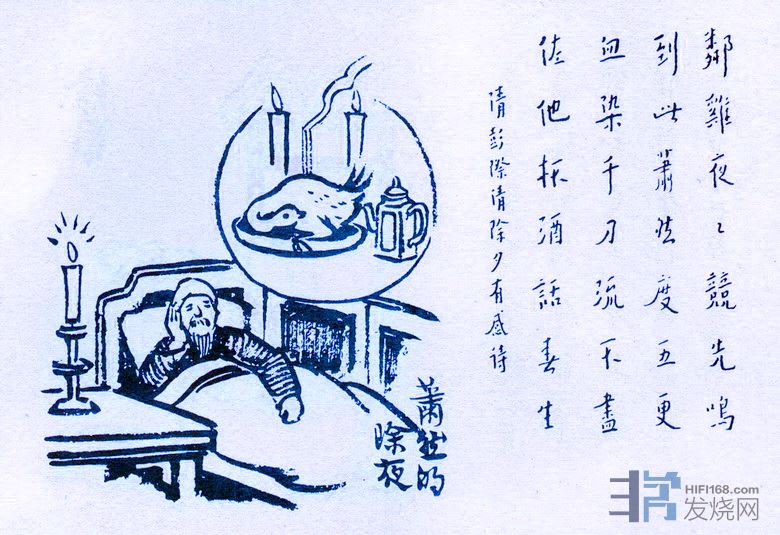 鄰雞夜々競先鳴
到此蕭然度五更
血染千刀流不盡
佐他杯酒話春生
清彭際清除夕有感诗
蕭然的
除夜
HIFI168.com
发烧网